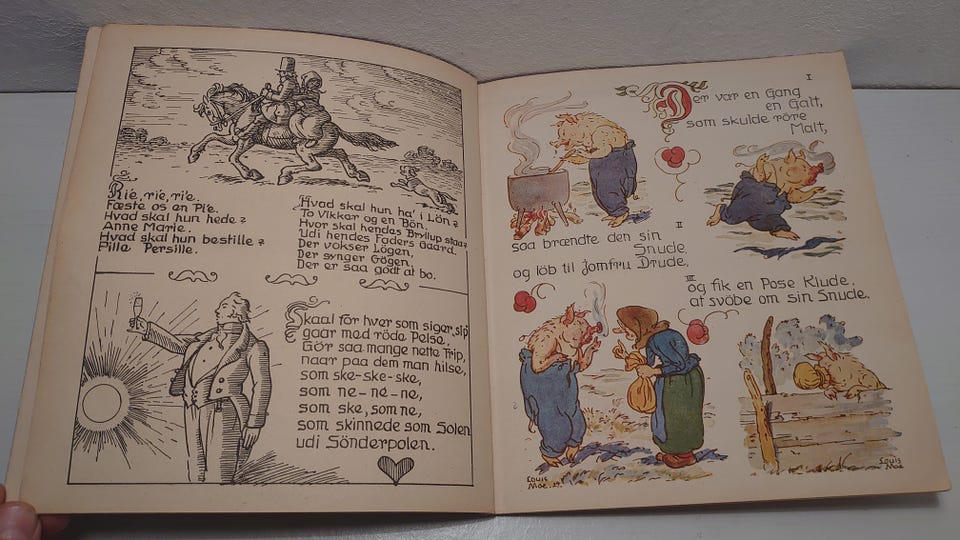 Rie, rie, rie.
Fæste os en Pie.
Hvad skal hun hede?
Anne Marie.
Hvad skal hun bestille?
Pille Persille.
Hvad skal hun ha' i Lön?
To Vikkar og en Bön.
Hvor skal hendes Bryllup staa?
Udi hendes Faders Gaard.
Der vokser Lögen,
Der synger Gögen,
Der er saa godt at bo.
Skaal for hver som siger slip
gaar med röde Pelse.
Gör saa mange nette Trip,
naar paa dem man hilse,
som ske-ske-ske,
som ne-ne-ne,
som ske, som ne,
som skinnede som Solen
udi Sönderpolen.
I
Der var en Gang
en Galt,
som skulde röre
Malt,
II
saa brændte den sin
Snude
og löb til Jomfru Drude,
III
og fik en Pose Klude,
at svöbe om sin Snude.
Louis
Moe. 27.
Louis
Moe